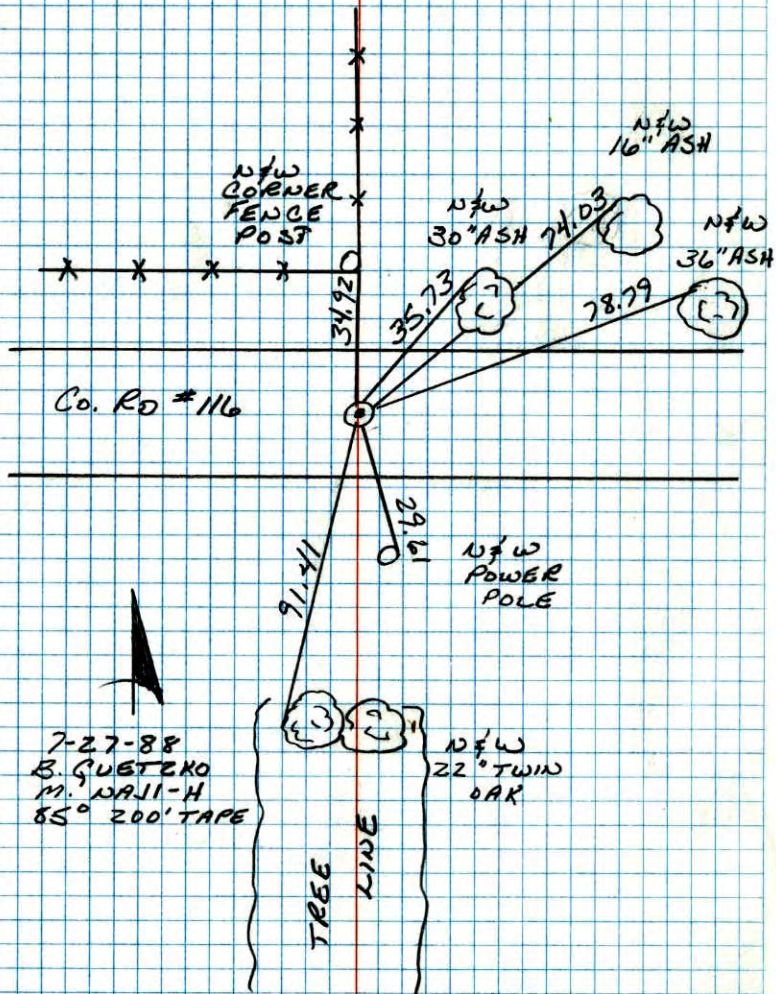 N&W
16" ASH
N&W
CORNER
FENCE
POST
N&W
30" ASH
74.03
N&W
36" ASH
34.92
35.73
78.79
Co. RD #116
29.61
91.41
N&W
POWER
POLE
7-27-88
B. GUETZKO
M. NAJI-H
85° 200' TAPE
N&W
22" TWIN
OAK
TREE
LINE